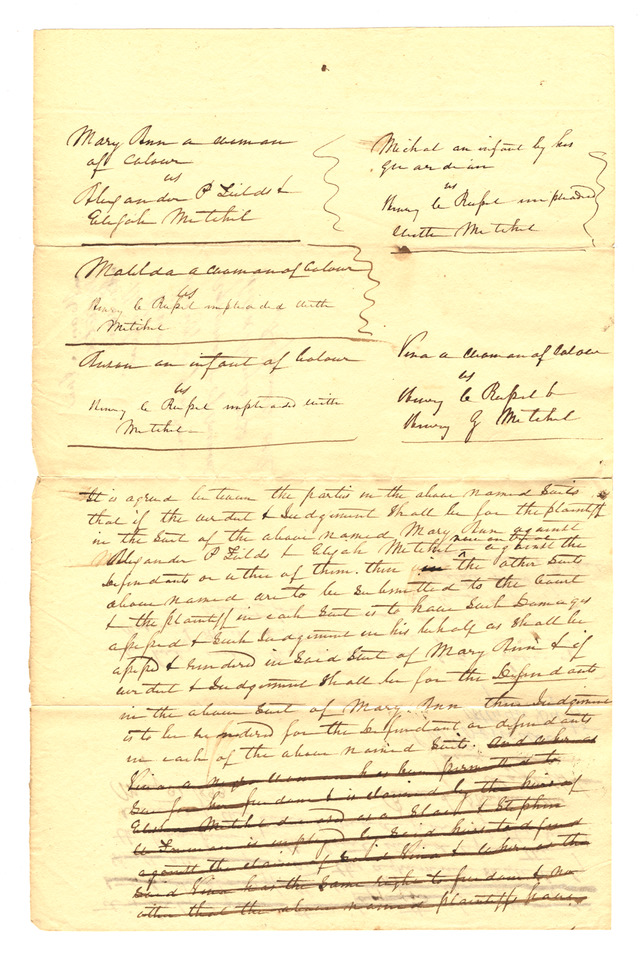 Mary Ann a woman
of Colour
vs
Alexander P Fields &
Elijah Mitchel
Michal an infant by his
guardian
vs
Henry C Russel impleaded
with Mitchel
Matilda a woman of Colour
vs
Henry C Russel impleaded with
Mitchel
Anson an infant of Colour
vs
Henry C Russel impleaded with
Mitchel
Vina a woman of Colour
vs
Henry C Russel &
Henry G Mitchel
It is agreed between the parties in the above named Suits
that if the verdict & Judgment Shall be for the plaintiff
in the Suit of the above named Mary Ann against
Alexander P Fields & Elijah Mitchel against the
Defendants or either of them. then the other Suits
above named are to be Submitted to the Court
& the plaintiff in each Suit is to have Such Damages
assessed & Such Judgment in his behalf as Shall be
assessed & rendered in Said Suit of Mary Ann & if
verdict & Judgment Shall be for the Defendants
in the above Suit of Mary Ann then Judgment
is to be rendered for the Defendant or defendants
in each of the above named Suits. and whereas
Vina a negro woman has been permitted to
Sue for her freedom & is claimed by the heirs of
Mitchel deceased as a Slave & Stephen
W Foreman is employed by Said heirs to defend
against the claim of Said Vina & whereas the
Said Vina has the Same right to freedom & no
other than the above named plaintiffs have